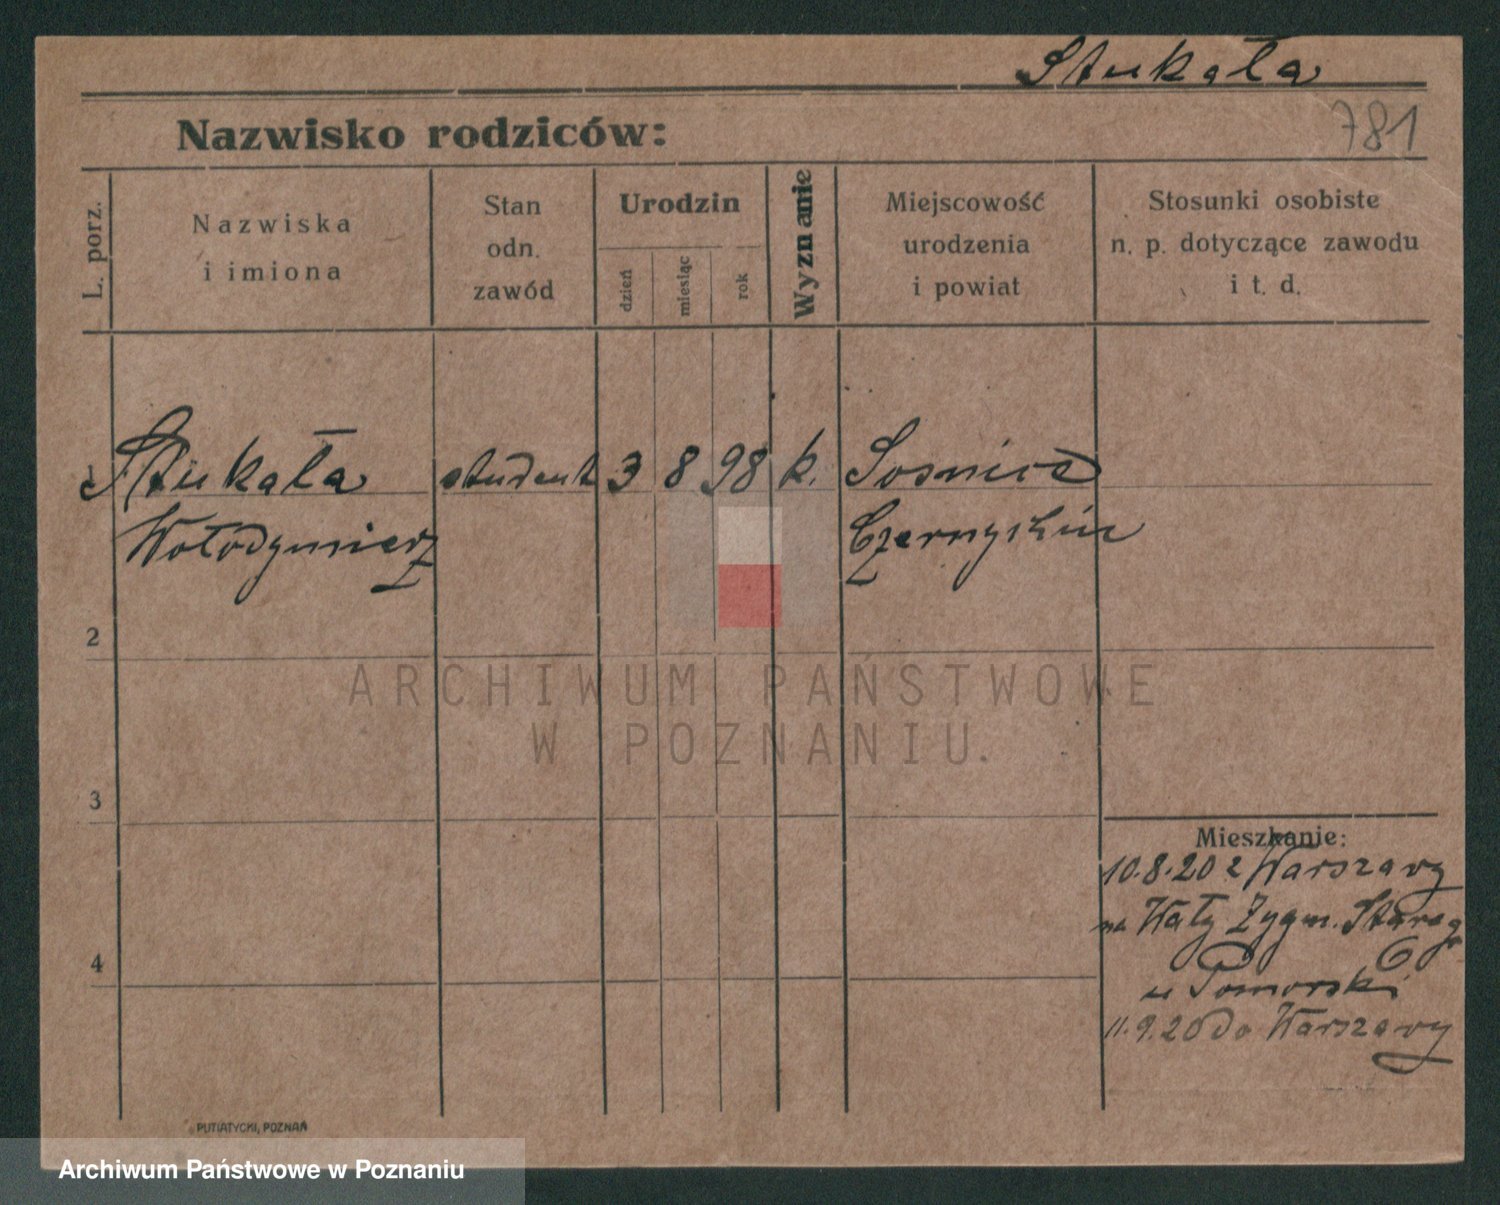 Stukała
781
Nazwisko rodziców:
L. porz.
Nazwiska
i imiona
Stan
odn.
zawód
Urodzin
dzień
miesiąc
rok
Wyznanie
Miejscowość
urodzenia
i powiat
Stosunki osobiste
n. p. dotyczące zawodu
i t. d.
1 Stukała student 3 8 98 k. Sosnica
Wołodymierz
2
ARCHIWUM PAŃSTWOWE
W POZNANIU.
3
4
Mieszkanie:
10.8.20 z Warszawy
na Wały Zygm. Starego
6
u Pomorski
11.9.20 do Warszawy
PUTIATYCKI, POZNAŃ
Archiwum Państwowe w Poznaniu